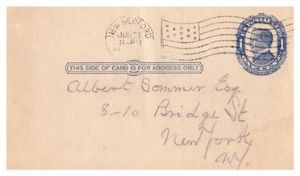 NEW BEDFORD
JUN 21
8-PM
THIS SIDE OF CARD IS FOR ADDRESS ONLY
Albert Sommer Esq.
8-10 Bridge St
New York
NY.